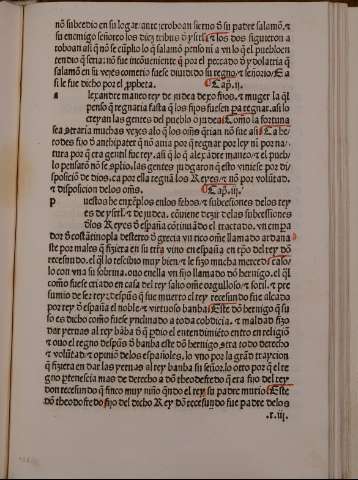 nō subcedio en su logar: ante ieroboan sieruo d̄ su padre salamō. ⁊
su enemigo señoreo los diez tribus d̄ ysrłs: ⁊ los dos siguieron a
roboan: assi q̄ no se cūplio lo q̄ salamō penso ni a vn lo q̄ el pueblo en
tendio q̄ seria: nō fue incōueniente q̄ por el peccado d̄ ydolatria q̄
salamō en su vejes cometio fuese diuidido su regno ⁊ señorio: E a
si le fue dicho por el ꝓpheta. Cap̄. ij.
a lexandre maneo rey de judea dexo fijos. ⁊ muger la q̄l
penso q̄ regnaria fasta q̄ los fijos fuesen pa regnar. assi lo
creyan las gentes del pueblo o judea: Como la fortuna
sea straria muchas vezes alo q̄ los om̄s q̄rian nō fue asi: Ca he
rodes fijo d̄ anthipater q̄ nō auia por q̄ regnar por ley ni por na-
tura por q̄ era gentil fue rey. asi q̄ lo q̄ alexādre maneo ⁊ el pueb-
lo pensarō nō se ꝯplio. las gentes judgaron q̄ esto viniese por di-
sposiciō de dios. ca por ella regnā los Reyes ⁊ nō por volūtad.
⁊ disposicion delos om̄s. Cap̄. iij.
p uestos he exēplos enlos fechos ⁊ subcesiones delos rey
es de ysrłs. ⁊ de judea. cōuiene dezir delas subcessiones
d̄los Reyes d̄ españa cōtinuādo el tractado. vn empa
dor d̄ costātinopla desterro d̄ grecia vn rico om̄e llamado ardana
ste por males q̄ fiziera en su trra vino en españa en tp̄o del rey dō
recesundo. el q̄l lo rescibio muy bien ⁊ le fizo mucha merced: ⁊ caso
lo con vna su sobrina. ouo enella vn fijo llamado dō hernigo. el q̄l
como fuese criado en casa del rey salio om̄e orgulloso. ⁊ sotil. ⁊ pre
sumio de ser rey: despūs q̄ fue muerto el rey recesundo fue alcada
por rey d̄ españa el noble. ⁊ virtuoso banba: Este dō hernigo q̄ su
so es dicho como fuese ynclinado a toda cobdicia. ⁊ maldad fizo
dar yeruas al rey bāba d̄ q̄ ꝑdio el entendimiēto entro en religiō
⁊ ouo el regno despūs d̄ banba este dō hernigo. stra todo derecho
⁊ volūtad. ⁊ opiniō delos españoles. lo vno por la grand trayçion
q̄ fiziera en dar las yeruas al rey banba su señor. lo otro por q̄ el re
gno ꝑtenescia mas de derecho a dō theodefredo q̄ era fijo del rey
don recesundo q̄ finco muy niño q̄ndo el rey su padre murio: Este
dō theodofredo fijo del dicho Rey dō recesundo fue padre delos
.r. iij.